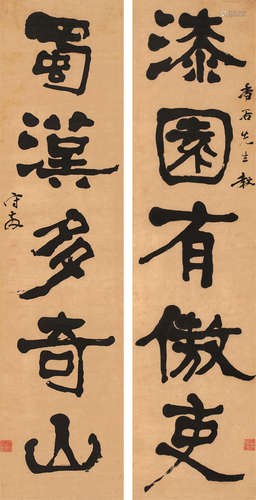 漆園有傲吏
香石先生教
蜀漢多奇山